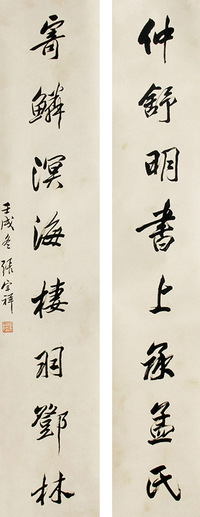 仲舒明書上承孟氏
寄鱗溟海棲羽鄧林
壬戌冬張宗祥